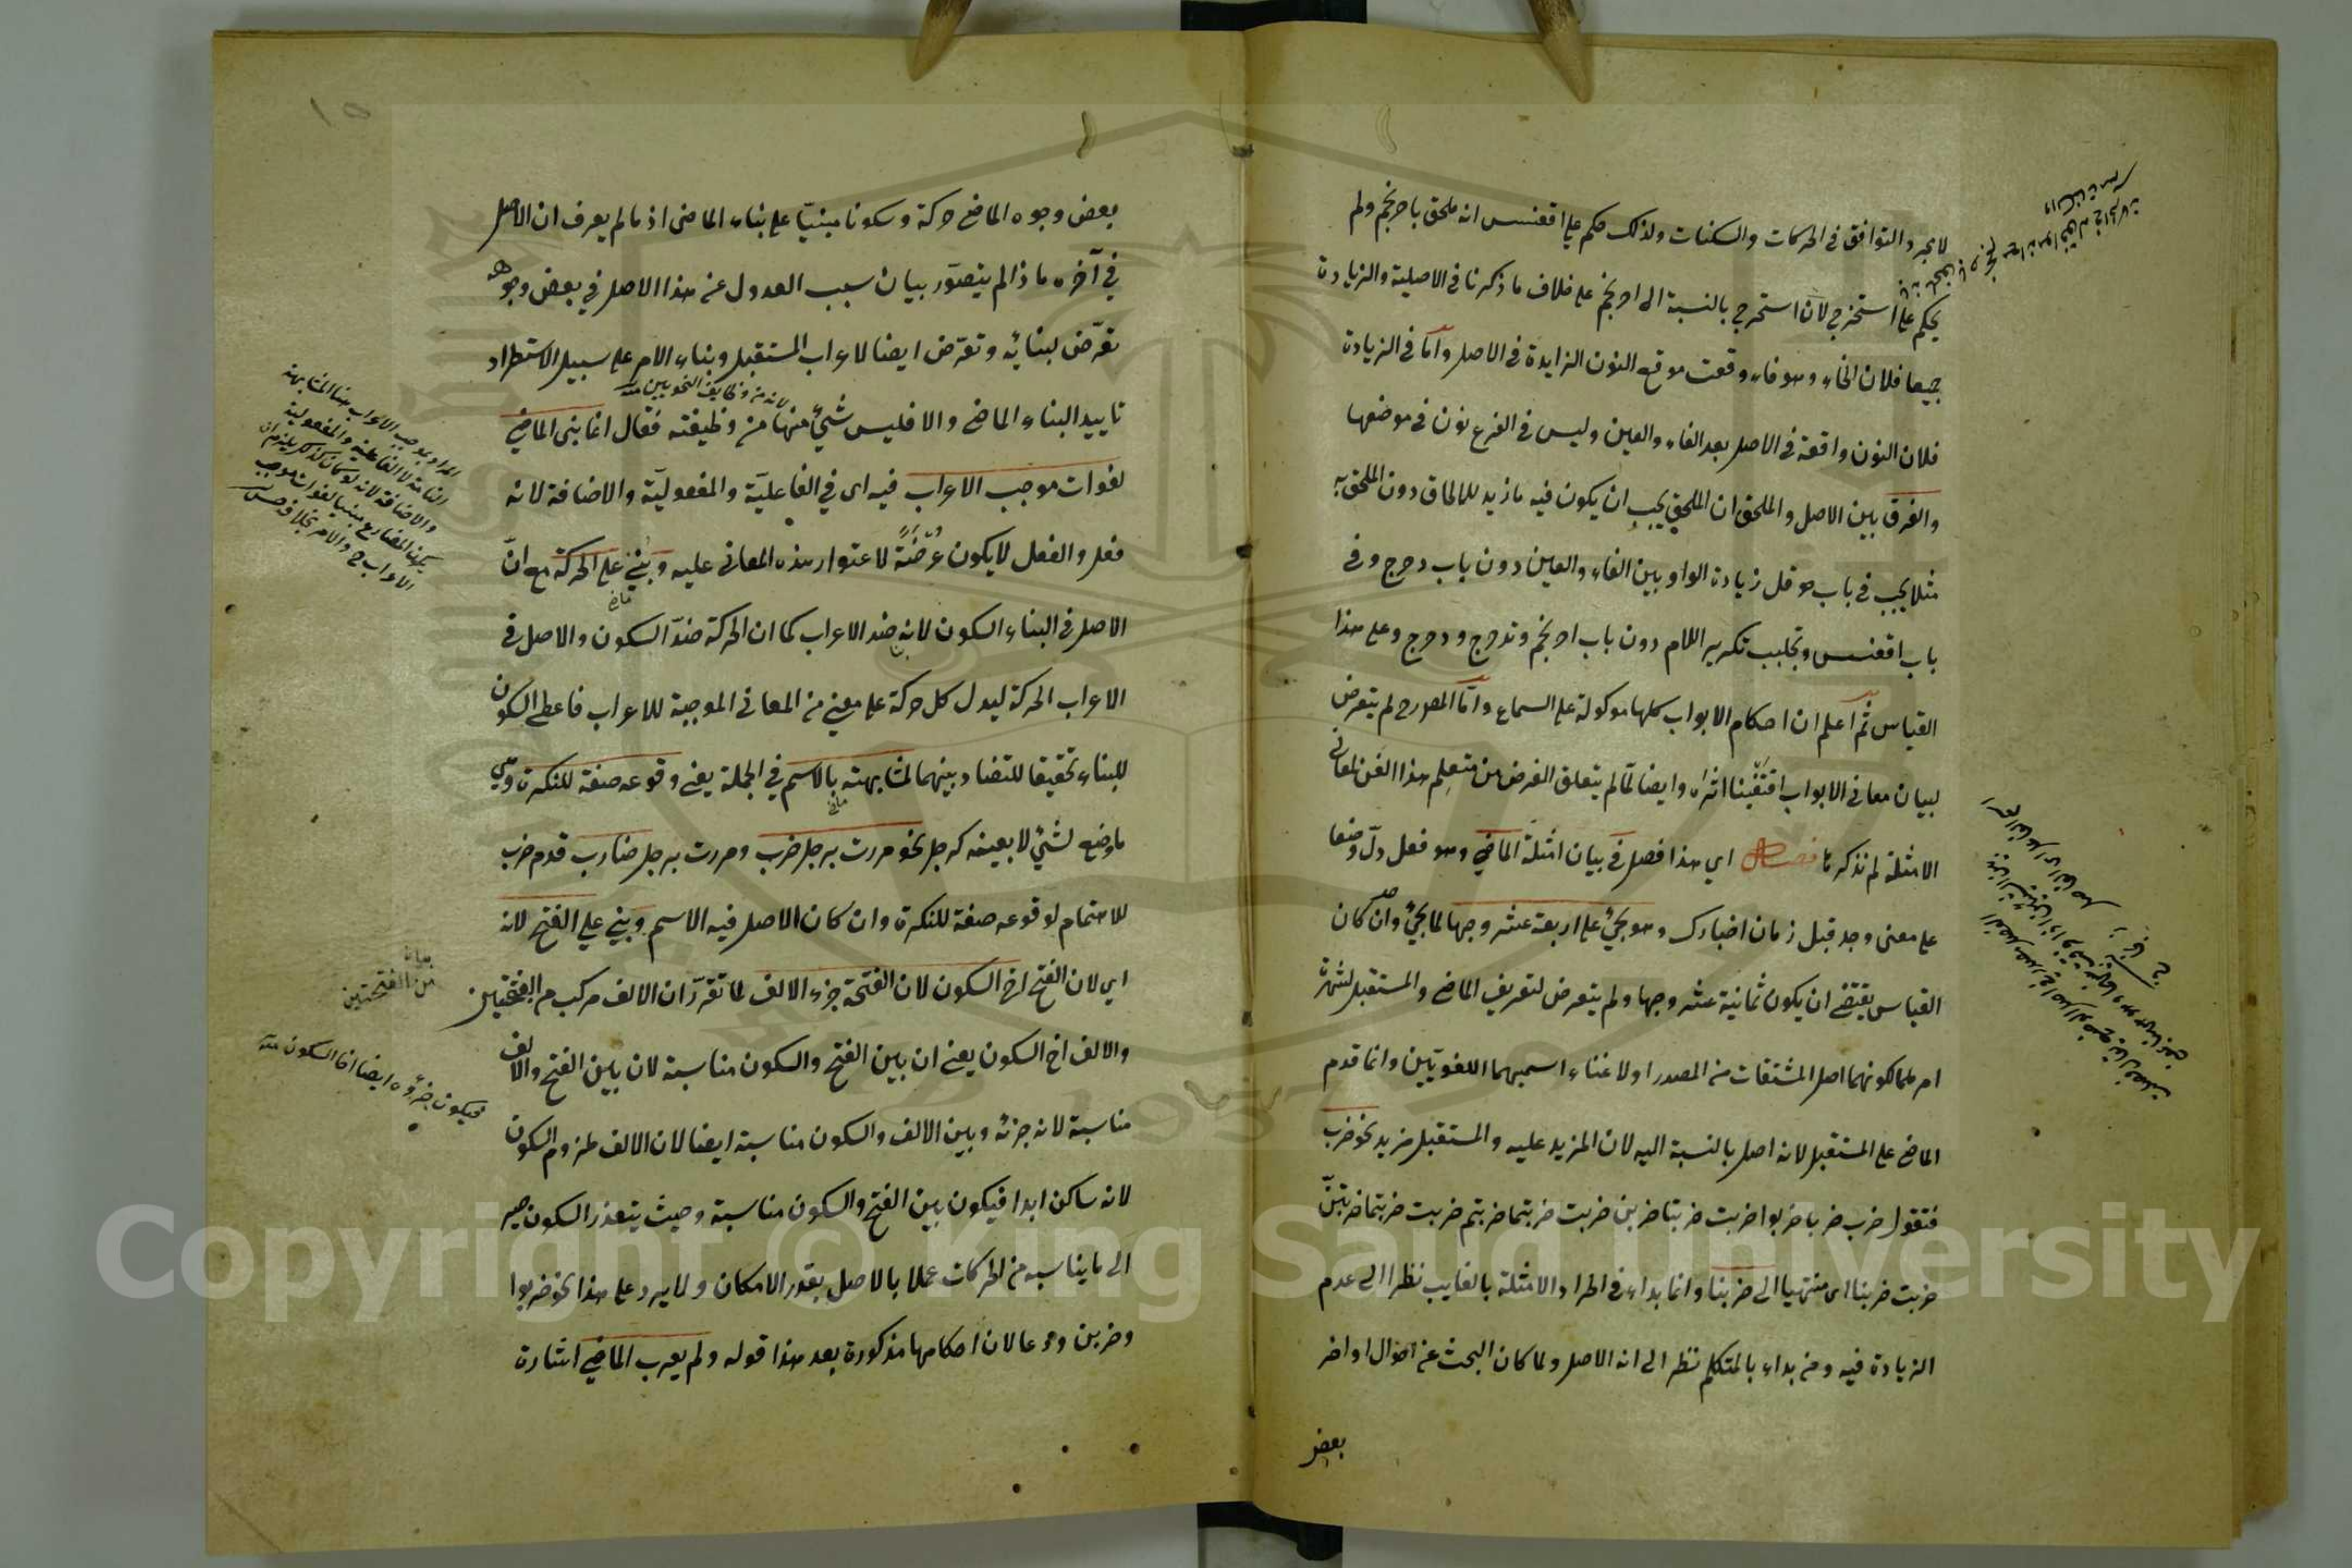 لا مجرد التوافق في الحركات والسكنات ولذلك حكم على اقعنسس انه ملحق باحرنجم ولم
يحكم على استخرج لان استخرج بالنسبة الى احرنجم على خلاف ما ذكرنا في الاصلية والزيادة
جميعا فلان الخاء وهو فاء وقعت موقع النون الزايدة في الاصل واما في الزيادة
فلان النون واقعة في الاصل بعد الفاء والعين وليس في الفرع نون في موضعها
والفرق بين الاصل والملحق ان الملحق يجب ان يكون فيه ما زيد للالحاق دون الملحق به
مثلا يجب في باب حوقل زيادة الواو بين الفاء والعين دون باب دحرج وفي
باب اقعنسس وتجلبب تكرير اللام دون باب احرنجم وتدحرج ودحرج وعلى هذا
القياس ثم اعلم ان احكام الابواب كلها موكولة على السماع واما المص رح لم يتعرض
لبيان معاني الابواب اقتفينا اثره وايضا لما لم يتعلق الغرض من متعلم هذا الفن لمعاني
الامثلة لم نذكرها فصل اي هذا فصل في بيان امثلة الماضي وهو فعل دل وضعا
على معنى وجد قبل زمان اخبارك وهو يجيء على اربعة عشر وجها لما يجيء وان كان
القياس يقتضي ان يكون ثمانية عشر وجها ولم يتعرض لتعريف الماضي والمستقبل لشهرة
امرهما لكونهما اصل المشتقات من المصدر اولاغناء اسميهما اللغويين وانما قدم
الماضي على المستقبل لانه اصل بالنسبة اليه لان المزيد عليه والمستقبل مزيد نحو ضرب
فتقول ضرب ضربا ضربوا ضربت ضربتا ضربن ضربت ضربتما ضربتم ضربت ضربتما ضربتن
ضربت ضربنا اى منتهيا الى ضربنا وانما بداء في اطراد الامثلة بالغايب نظرا الى عدم
الزيادة فيه ومن بداء بالمتكلم نظر الى انه الاصل ولما كان البحث عن احوال اواخر
بعض
١٥
بعض وجوه الماضي حركة وسكونا مبنيّا على بناء الماضى اذ ما لم يعرف ان الاصل
في آخره ماذا لم يتصوّر بيان سبب العدول عن هذا الاصل في بعض وجوهه
تعرّض لبنائه وتعرّض ايضا لاعراب المستقبل وبناء الامر على سبيل الاستطراد
لانه من وظايف النحويين منه
تاييد البناء الماضي والا فليس شيء منها من وظيفته فقال انما بنى الماضي
لفوات موجب الاعراب فيه اى في الفاعليّة والمفعوليّة والاضافة لانه
فعل والفعل لا يكون عرضة لاعتوار هذه المعاني عليه وبني على الحركة مع انّ
الاصل في البناء السكون لانه ضد الاعراب كما ان الحركة ضدّ السكون والاصل في
الاعراب الحركة ليدل كل حركة على معنى من المعاني الموجبة للاعراب فاعطى السكون
للبناء تحقيقا للتضاد بينهما لمشابهته بالاسم في الجملة يعني وقوعه صفة للنكرة وهي
ما وضع لشيء لا بعينه كرجل نحو مررت برجل ضرب ومررت برجل ضارب قدم ضرب
للاهتمام لوقوعه صفة للنكرة وان كان الاصل فيه الاسم وبني على الفتح لانه
اي لان الفتح اخ السكون لان الفتحة جزء الالف لما تقرّر ان الالف مركب من الفتحتين
والالف اخ السكون يعني ان بين الفتح والسكون مناسبة لان بين الفتح والالف
مناسبة لانه جزئه وبين الالف والسكون مناسبة ايضا لان الالف ملزوم السكون
لانه ساكن ابدا فيكون بين الفتح والسكون مناسبة وحيث يتعذر السكون صير
الى ما يناسبه من الحركات عملا بالاصل بقدر الامكان ولا يرد على هذا نحو ضربوا
وضربن ودعا لان احكامها مذكورة بعد هذا قوله ولم يعرب الماضي اشارة
المراد بموجب الاعراب هنا المشابهة
التامة لا الفاعلية والمفعولية
والاضافة لانه لو كان كذلك يلزم ان
يكون المضارع مبنيا لفوات موجب
من الفتحتين
فيكون جزؤه ايضا اخا السكون منه
Copyright © King Saud University